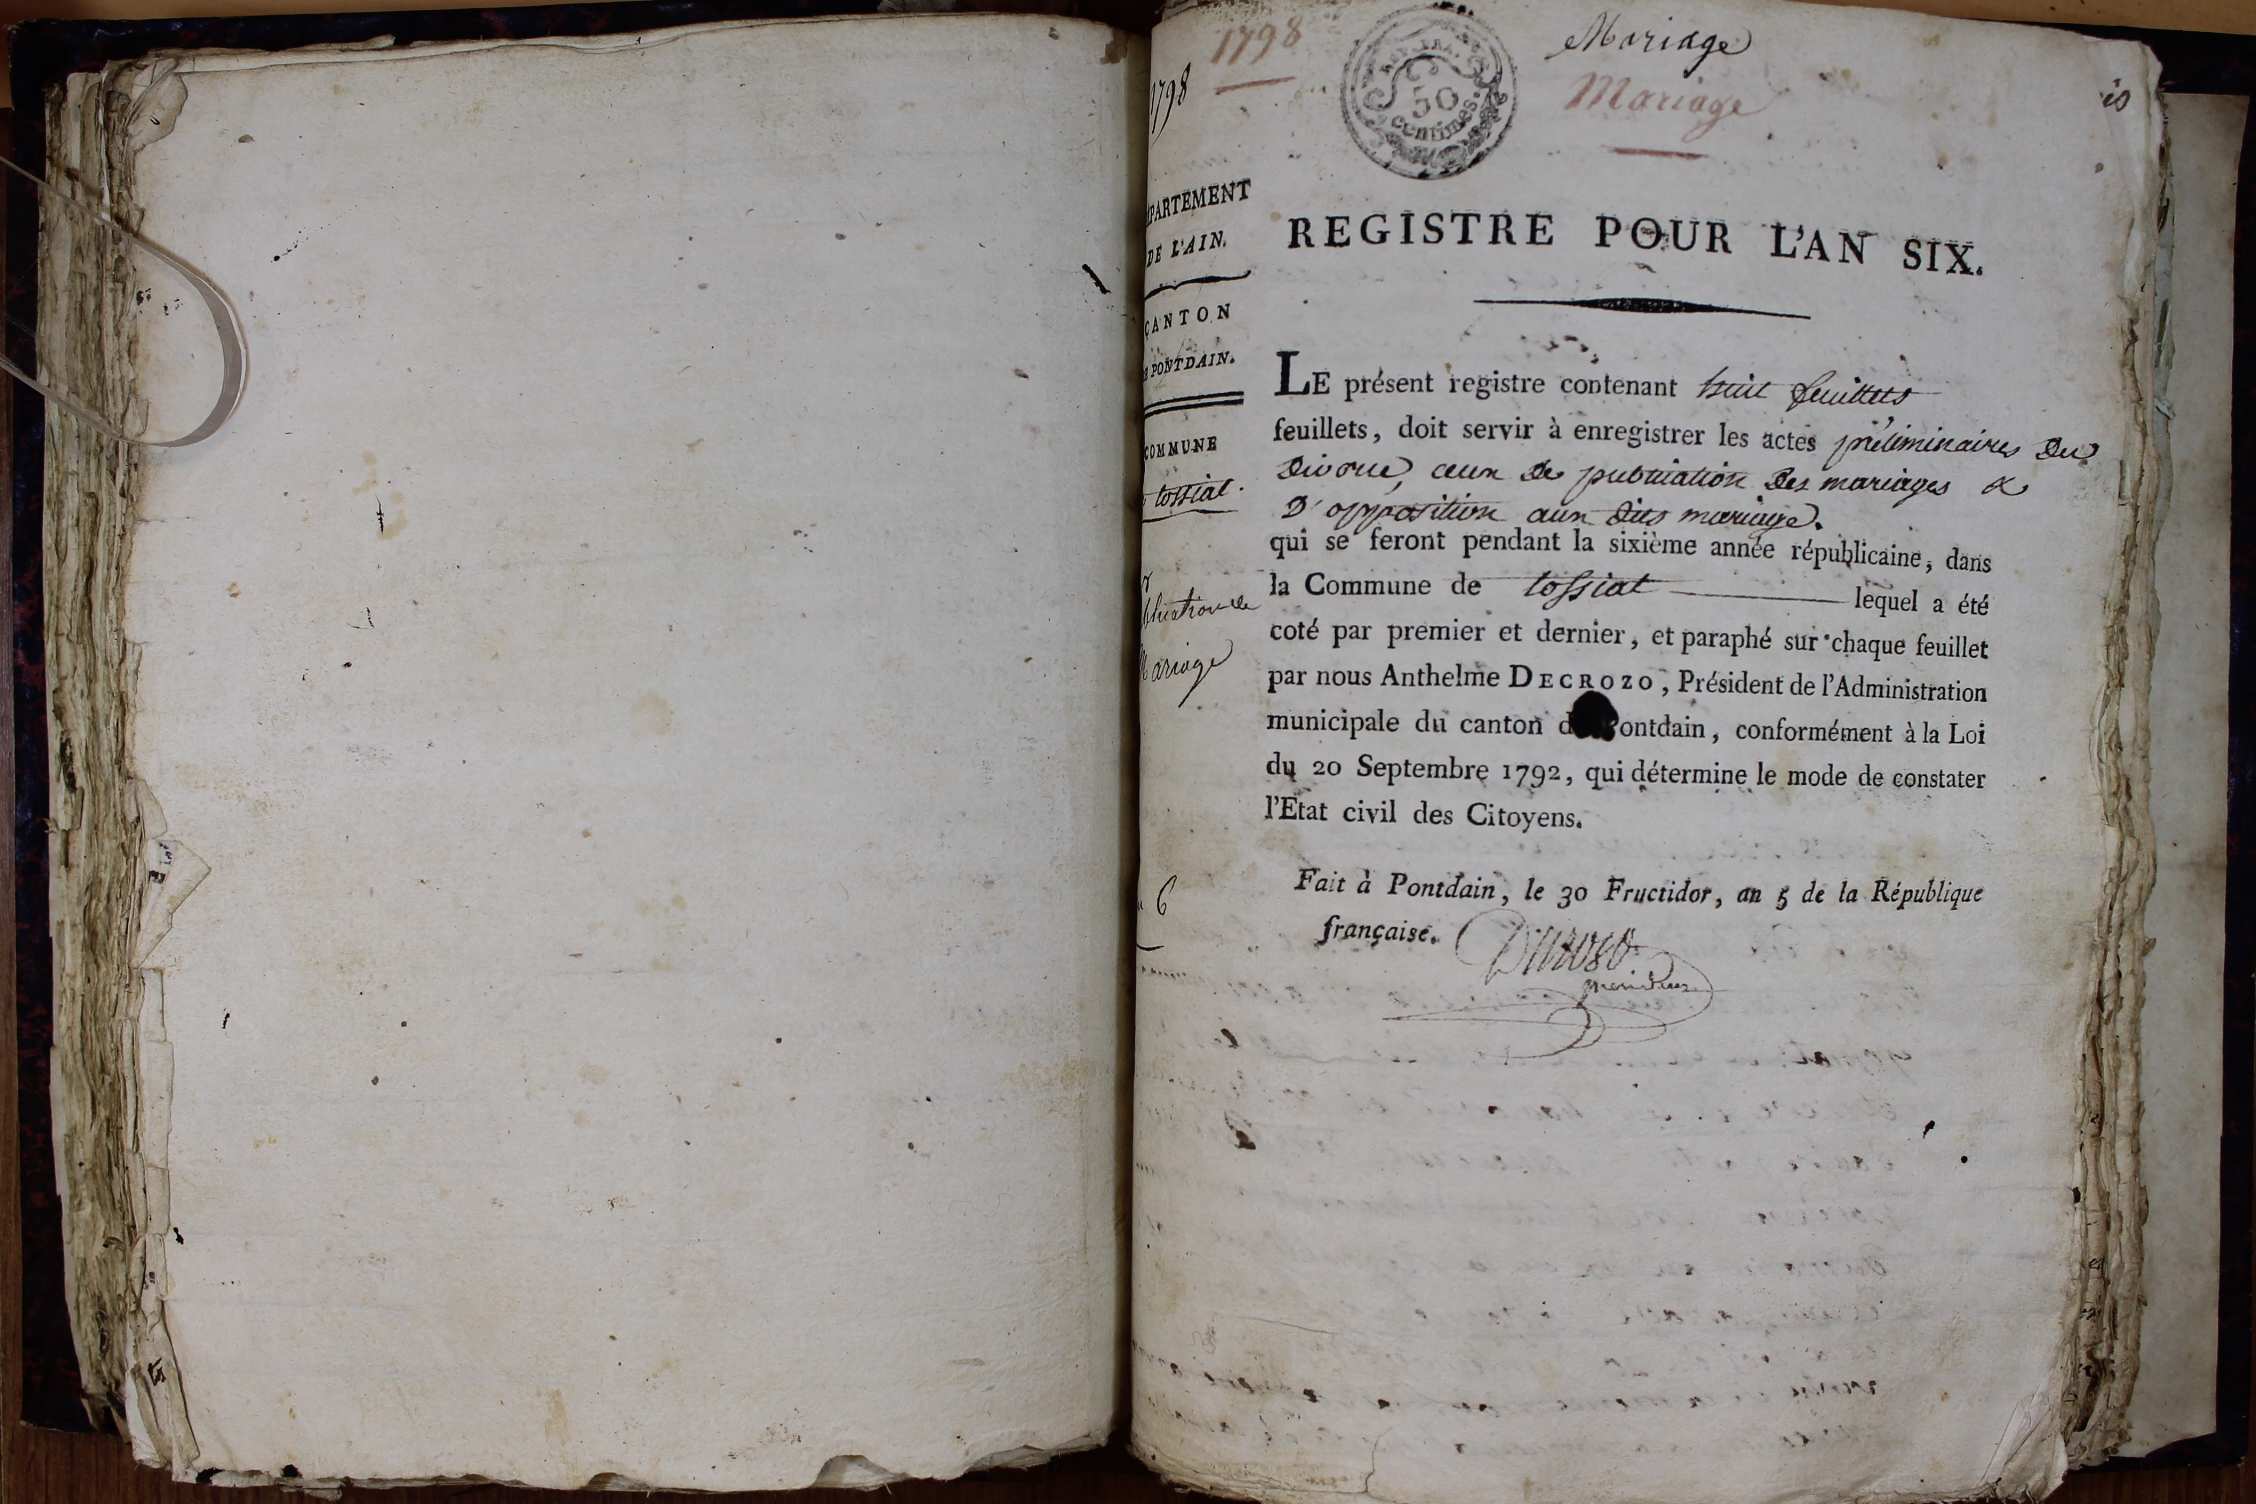 1798
Mariage
Mariage
1798
REP. FRA.
50
centimes.
PARTEMENT
DE L'AIN.
CANTON
PONTDAIN.
COMMUNE
tossiat.
Mariage
6
REGISTRE POUR L'AN SIX.
LE présent registre contenant huit feuillets
feuillets, doit servir à enregistrer les actes préliminaires du
divorce, ceux de publication des mariages &
d'opposition aux dits mariage.
qui se feront pendant la sixième année républicaine, dans
la Commune de tossiat lequel a été
coté par premier et dernier, et paraphé sur chaque feuillet
par nous Anthelme DECROZO, Président de l'Administration
municipale du canton d ontdain, conformément à la Loi
du 20 Septembre 1792, qui détermine le mode de constater
l'Etat civil des Citoyens.
Fait à Pontdain, le 30 Fructidor, an 5 de la République
française.